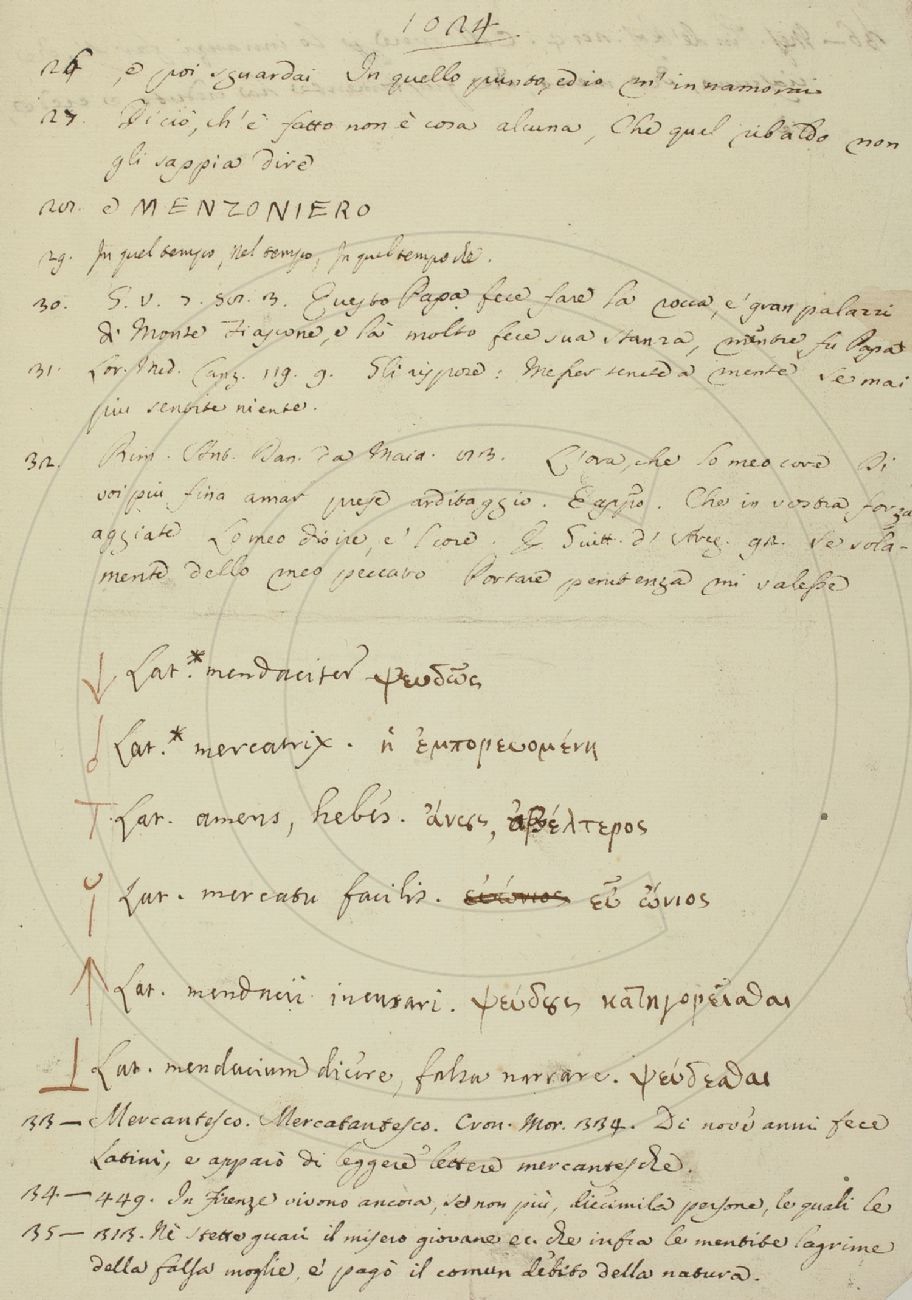 1024.
26 , e poi sguardai In quello punto, ed io m' innamorai
27. Di ciò, ch' è fatto non è cosa alcuna, Che quel ribaldo non
gli sappia dire
28. e MENZONIERO
29. In quel tempo, Nel tempo, In quel tempo che.
30. G. V. 7. 3. Questo Papa fece fare la rocca, e' gran palazzi
di Monte Fiascone, e là molto fece sua stanza, mentre fu Papa
31. Lor. Med. Canz. 119. 9. Gli rispose: Messer tenete a mente Se mai
più sentite niente.
32. Rim. Ant. Dan. da Maia. L'ora, che lo meo core Di
voi più fina amar prese arditaggio. E appo. Che in vostra forza
aggiate Lo meo disire, e' l core. E Guitt. d' Arez. 92. Se sola-
mente dello meo peccato Portare penitenza mi valesse
Lat.* mendaciter ψευδῶς
Lat.* mercatrix. ἡ ἐμπορευομένη
Lat. amens, hebes. ἄνους, ἀβέλτερος
Lat. mercatu facilis. εὐώνιος εὖ ὤνιος
Lat. mendacii incusari. ψεύδους κατηγορεῖσθαι
Lat. mendacium dicere, falsa narrare. ψεύδεσθαι
33 — Mercantesco. Mercatantesco. Cron. Mor. 334. Di nove anni fece
Latini, e apparò di leggere lettere mercantesche.
34 — 449. In Firenze vivono ancora, se non più, diecimila persone, le quali le
35 — 313. Nè stette guari il misero giovane ec. che infra le mentite lagrime
della falsa moglie, e' pagò il comun debito della natura.